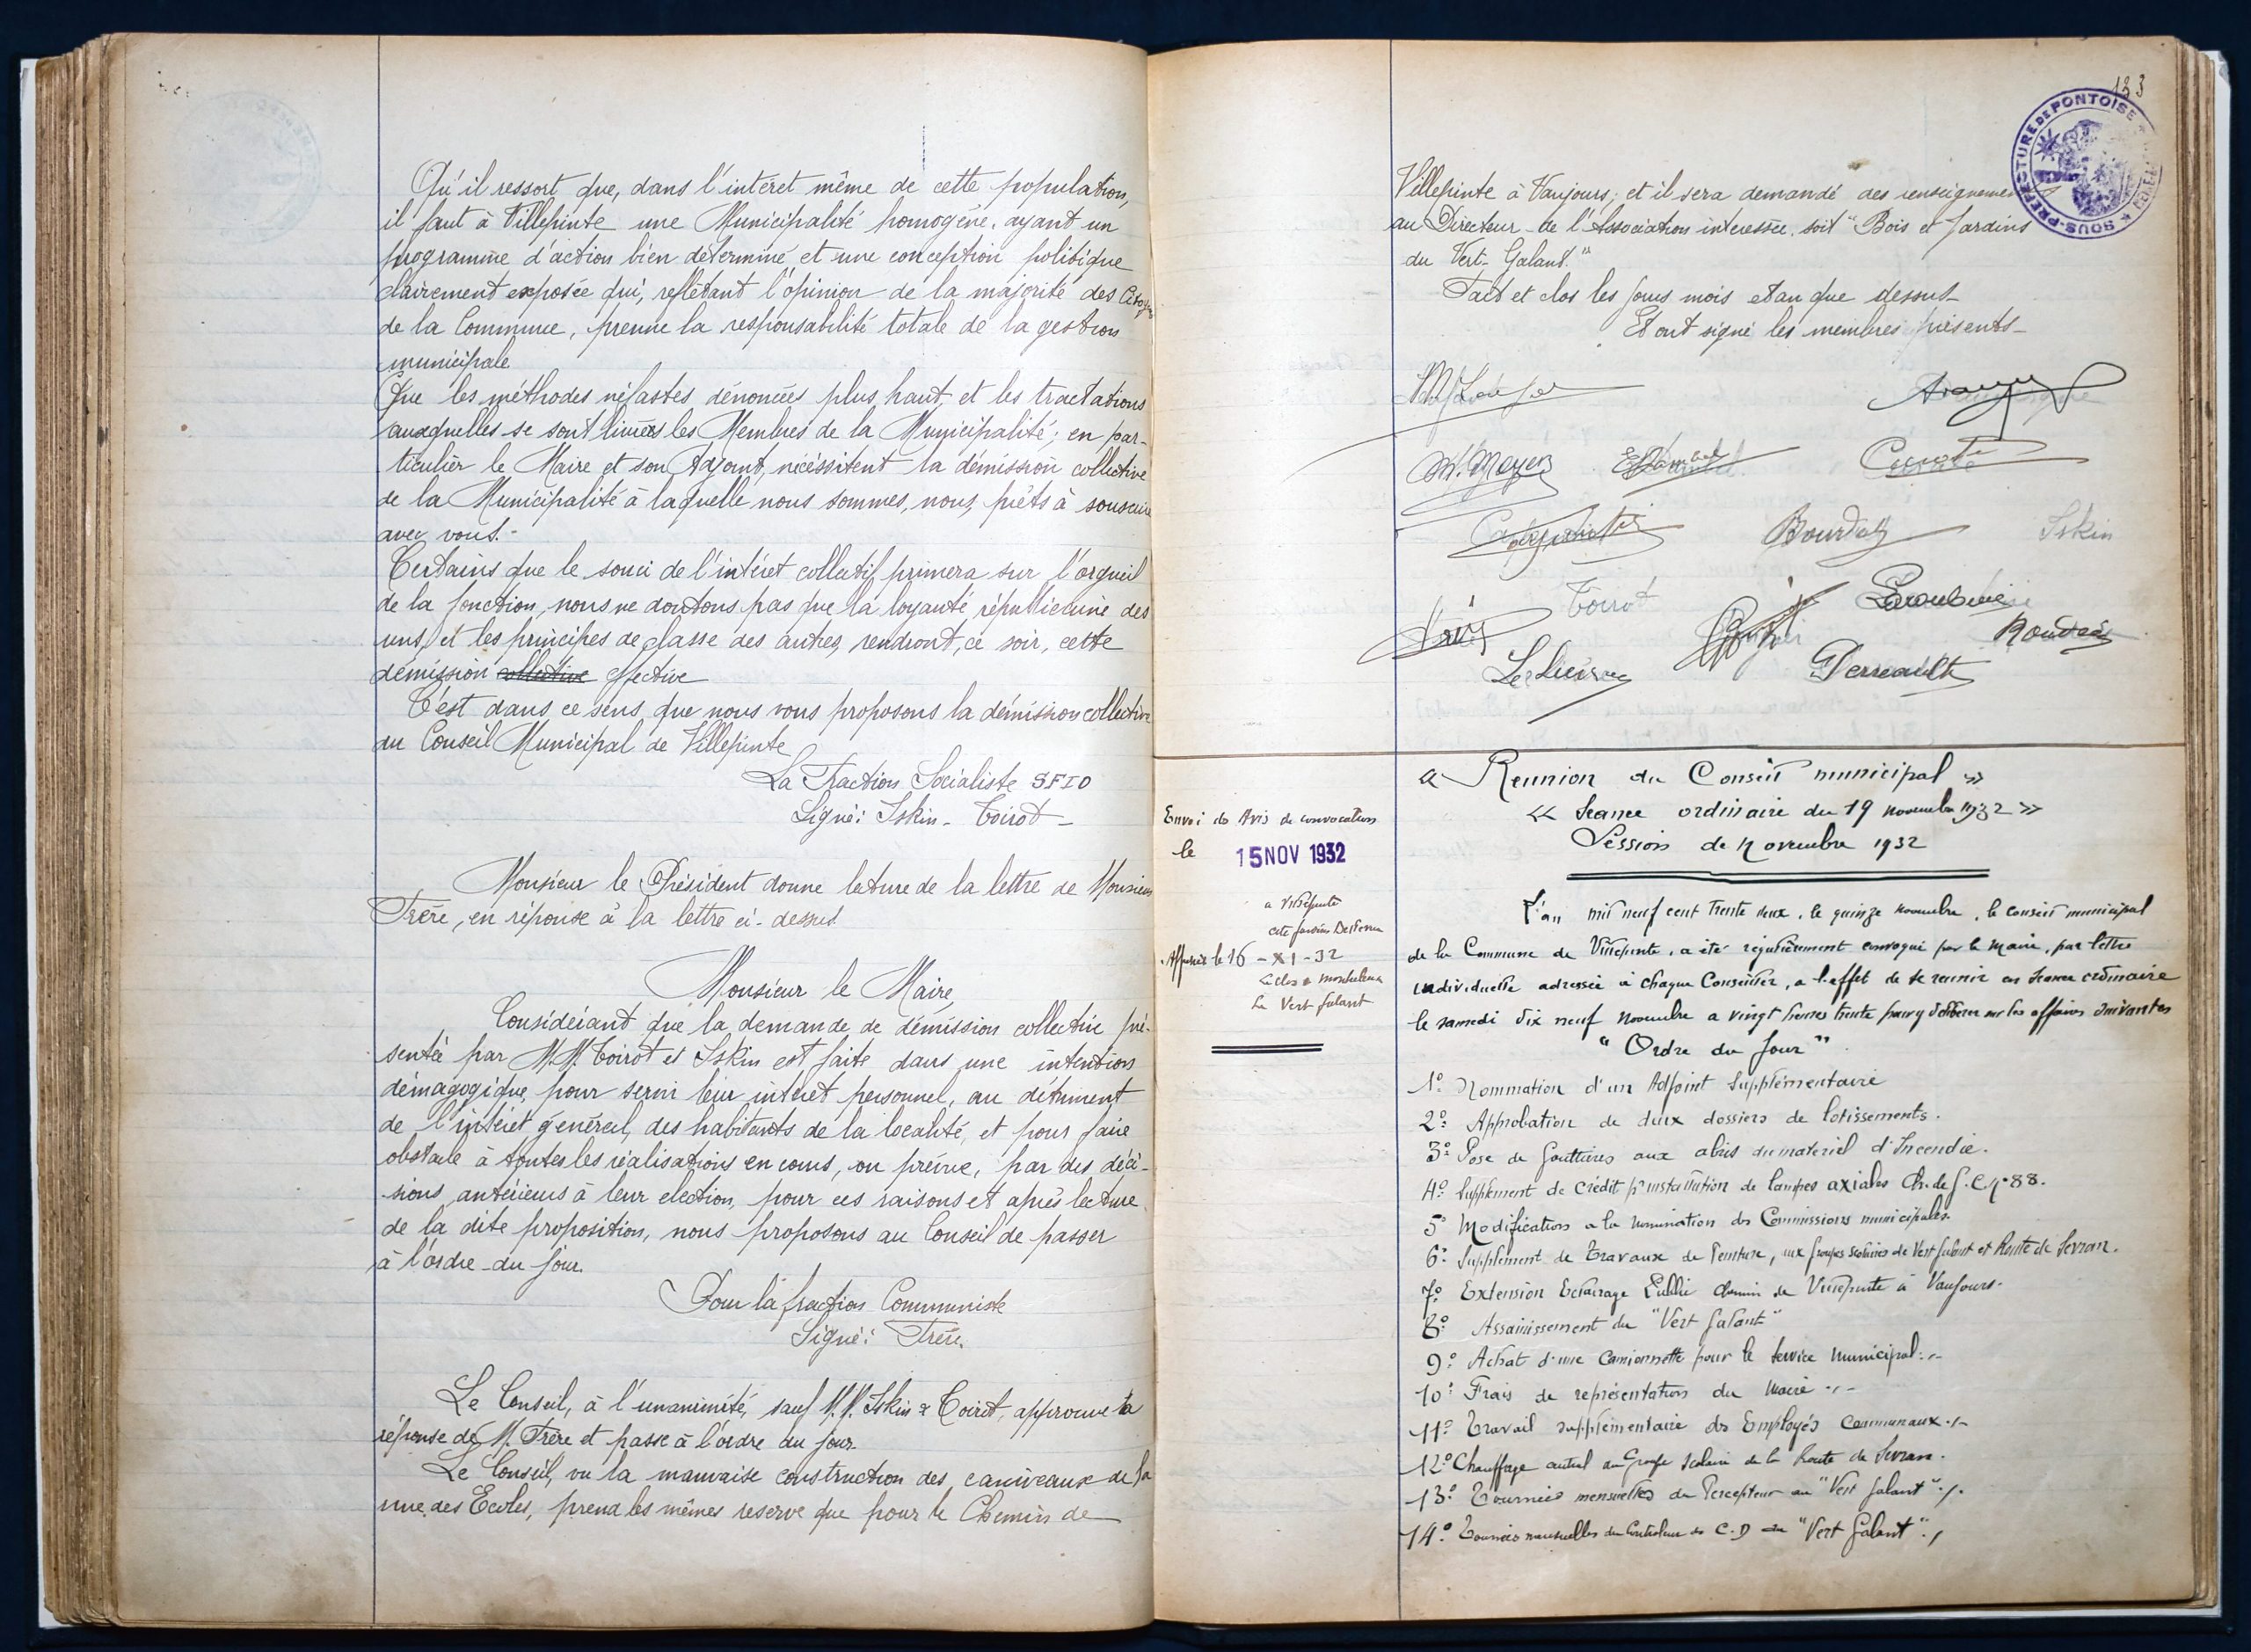 Qu'il ressort que, dans l'intéret même de cette population,
il faut à Villepinte une Municipalité homogène, ayant un
programme d'action bien déterminé et une conception politique
clairement exposée qui, reflétant l'opinion de la majorité des Citoyens
de la Commune, prenne la responsabilité totale de la gestion
municipale
Que les méthodes néfastes dénoncées plus haut, et les tractations
auxquelles se sont livrés les Membres de la Municipalité; en par-
ticulier le Maire et son Adjoint, nécéssitent la démission collective
de la Municipalité à laquelle nous sommes, nous, prêts à souscrire
avec vous.-
Certains que le souci de l'intéret collectif primera sur l'orgueil
de la fonction, nous ne doutons pas que la loyauté républicaine des
uns, et les principes de classe des autres, rendront, ce soir, cette
démission collective effective
C'est dans ce sens que nous vous proposons la démission collective
du Conseil Municipal de Villepinte
La Fraction Socialiste SFIO
Signé: Iskin - Toirot -
Monsieur le Président donne lecture de la lettre de Monsieur
Frère, en réponse à la lettre ci-dessus.
Monsieur le Maire,
Considérant que la demande de démission collective pré-
sentée par M.M. Toirot et Iskin est faite dans une intention
démagogique, pour servir leur intéret personnel, au détriment
de l'intéret général, des habitants de la localité, et pour faire
obstacle à toutes les réalisations en cours, ou prévue, par des déci-
sions antérieurs à leur election, pour ces raisons et après lecture
de la dite proposition, nous proposons au Conseil de passer
à l'ordre du jour.
Pour la fraction Communiste
Signé: Frère.
Le Conseil, à l'unanimité, sauf M.M. Iskin & Toirot, approuve la
réponse de M. Frère et passe à l'ordre du jour
Le Conseil, vu la mauvaise construction des caniveaux de la
rue des Ecoles, prend les mêmes reserve que pour le Chemin de
133
SOUS-PREFECTURE DE PONTOISE
Villepinte à Vaujours; et il sera demandé des renseignements
au Directeur de l'Association interessée, soit "Bois et Jardins
du Vert-Galant."
Fait et clos les jours mois et an que dessus-
Et ont signé les membres présents-
M. Meyer
Bourdat
Iskin
Toirot
Perreault
« Reunion du Conseil municipal »
« Seance ordinaire du 19 novembre 1932 »
Session de Novembre 1932
Envoi des Avis de convocation
le 15 NOV 1932
a Villepinte
Affiché le 16 - XI - 32
Le Vert Galant
L'an mil neuf cent trente deux, le quinze novembre, le conseil municipal
de la Commune de Villepinte, a été régulièrement convoqué par le Maire, par lettre
individuelle adressée à chaque Conseiller, a l'effet de se reunir en seance ordinaire
le samedi dix neuf novembre a vingt heures trente pour y délibérer sur les affaires suivantes
"Ordre du Jour"
1º Nommation d'un Adjoint Supplémentaire
2º Approbation de deux dossiers de lotissements.
3º Pose de Gouttières aux abris du materiel d'Incendie.
4º Supplément de Crédit pr installation de lampes axiales Ch. de G.C. nº 88.
5º Modification a la nomination des Commissions municipales.
6º Supplément de Travaux de Peinture, aux Groupes Scolaires de Vert Galant et Route de Sevran.
7º Extension Eclairage Public Chemin de Villepinte à Vaujours.
8º Assainissement du "Vert Galant"
9º Achat d'une Camionnette pour le Service Municipal.
10º Frais de représentation du Maire
11º Travail supplémentaire des Employés Communaux
12º Chauffage central au Groupe Scolaire de la Route de Sevran.
13º Tournées mensuelles du Percepteur au "Vert Galant".
14º Tournées mensuelles du Controleur des C.D au "Vert Galant".